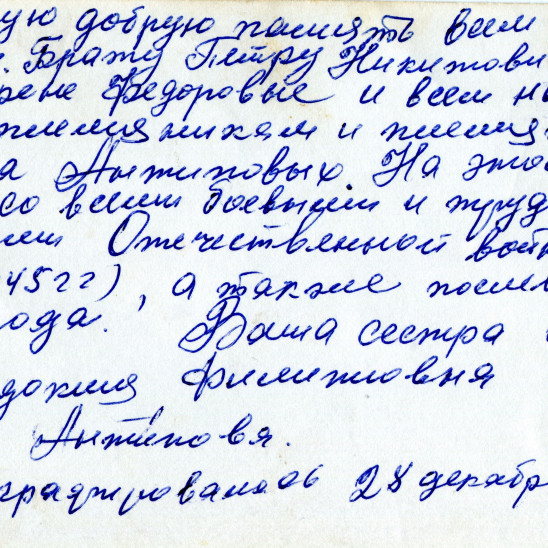 ую добрую память всем
. Бражу Петру Никитови
рене Федоровые и всем на
племянникам и племя
а Антиповых. На это
со всеми боевыми и труд
ми Отечественной вой
45гг), а также после
ода. Ваша сестра
докия Филиповня
Антиповя.
графировалась 28 декабр